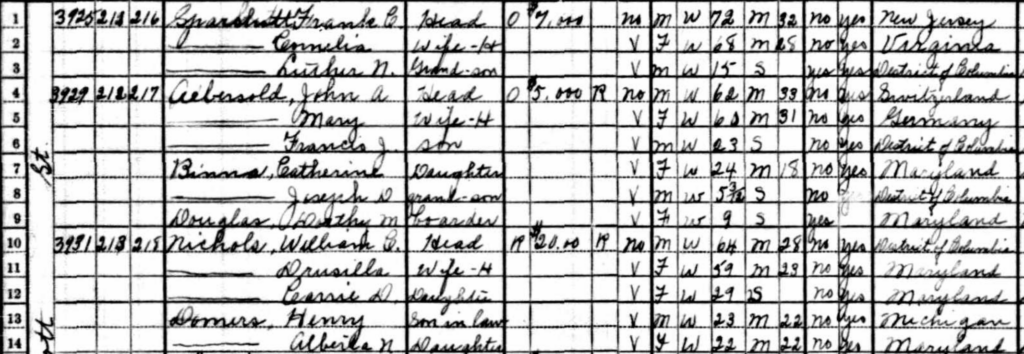 1 3925 213 216 Frank C. Head O $7,000 no M W 72 M 32 no yes New Jersey
2 Cornelia Wife-H V F W 68 M 28 no yes Virginia
3 Luther N. Grand-son V M W 15 S yes yes District of Columbia
4 3929 212 217 Aebersold, John A Head O $5,000 R no M W 62 M 33 no yes Switzerland
5 Mary Wife-H V F W 60 M 31 no yes Germany
6 Francis J. son V M W 23 S no yes District of Columbia
St.
7 Binns, Catherine Daughter V F W 24 M 18 no yes Maryland
8 Joseph D grand-son V M W S no District of Columbia
9 Douglas, M boarder V F W 9 S yes Maryland
10 3931 213 218 Nichols, William C. Head R $20.00 R no M W 64 M 28 no yes District of Columbia
11 Drusilla Wife-H V F W 59 M 23 no yes Maryland
12 Carrie D. Daughter V F W 29 S no yes Maryland
13 Domers, Henry Son in law V M W 23 M 22 no yes Michigan
14 Alberta N Daughter V F W 22 M 22 no yes Maryland